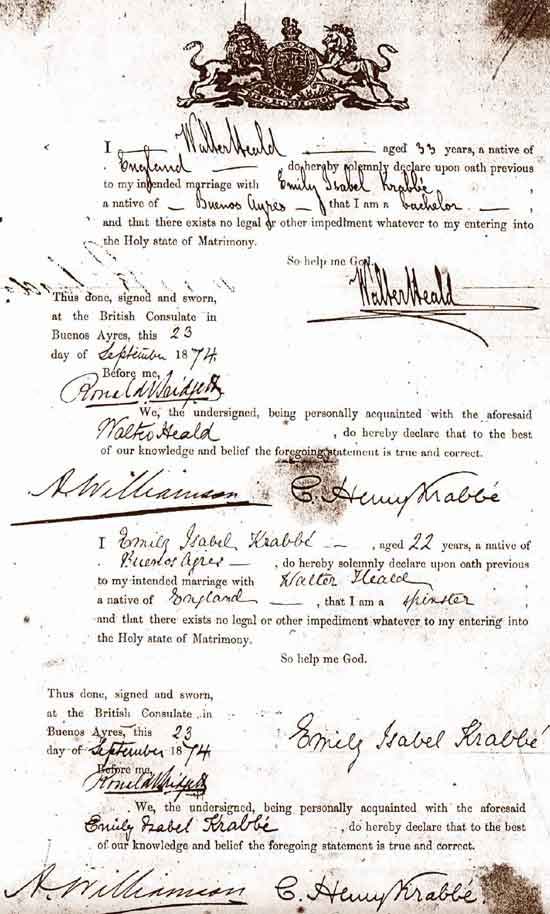 I Walter Heald aged 33 years, a native of
England do hereby solemnly declare upon oath previous
to my intended marriage with Emily Isabel Krabbé,
a native of Buenos Ayres, that I am a bachelor,
and that there exists no legal or other impediment whatever to my entering into
the Holy state of Matrimony.
So help me God.
Walter Heald
Thus done, signed and sworn,
at the British Consulate in
Buenos Ayres, this 23
day of September 1874
Before me,
Ronald Bridgett
We, the undersigned, being personally acquainted with the aforesaid
Walter Heald, do hereby declare that to the best
of our knowledge and belief the foregoing statement is true and correct.
A. Williamson C. Henry Krabbé
I Emily Isabel Krabbé, aged 22 years, a native of
Buenos Ayres, do hereby solemnly declare upon oath previous
to my intended marriage with Walter Heald
a native of England, that I am a spinster,
and that there exists no legal or other impediment whatever to my entering into
the Holy state of Matrimony.
So help me God.
Thus done, signed and sworn,
at the British Consulate in
Buenos Ayres, this 23
day of September 1874
Before me,
Ronald Bridgett
Emily Isabel Krabbé
We, the undersigned, being personally acquainted with the aforesaid
Emily Isabel Krabbé, do hereby declare that to the best
of our knowledge and belief the foregoing statement is true and correct.
A. Williamson C. Henry Krabbé.